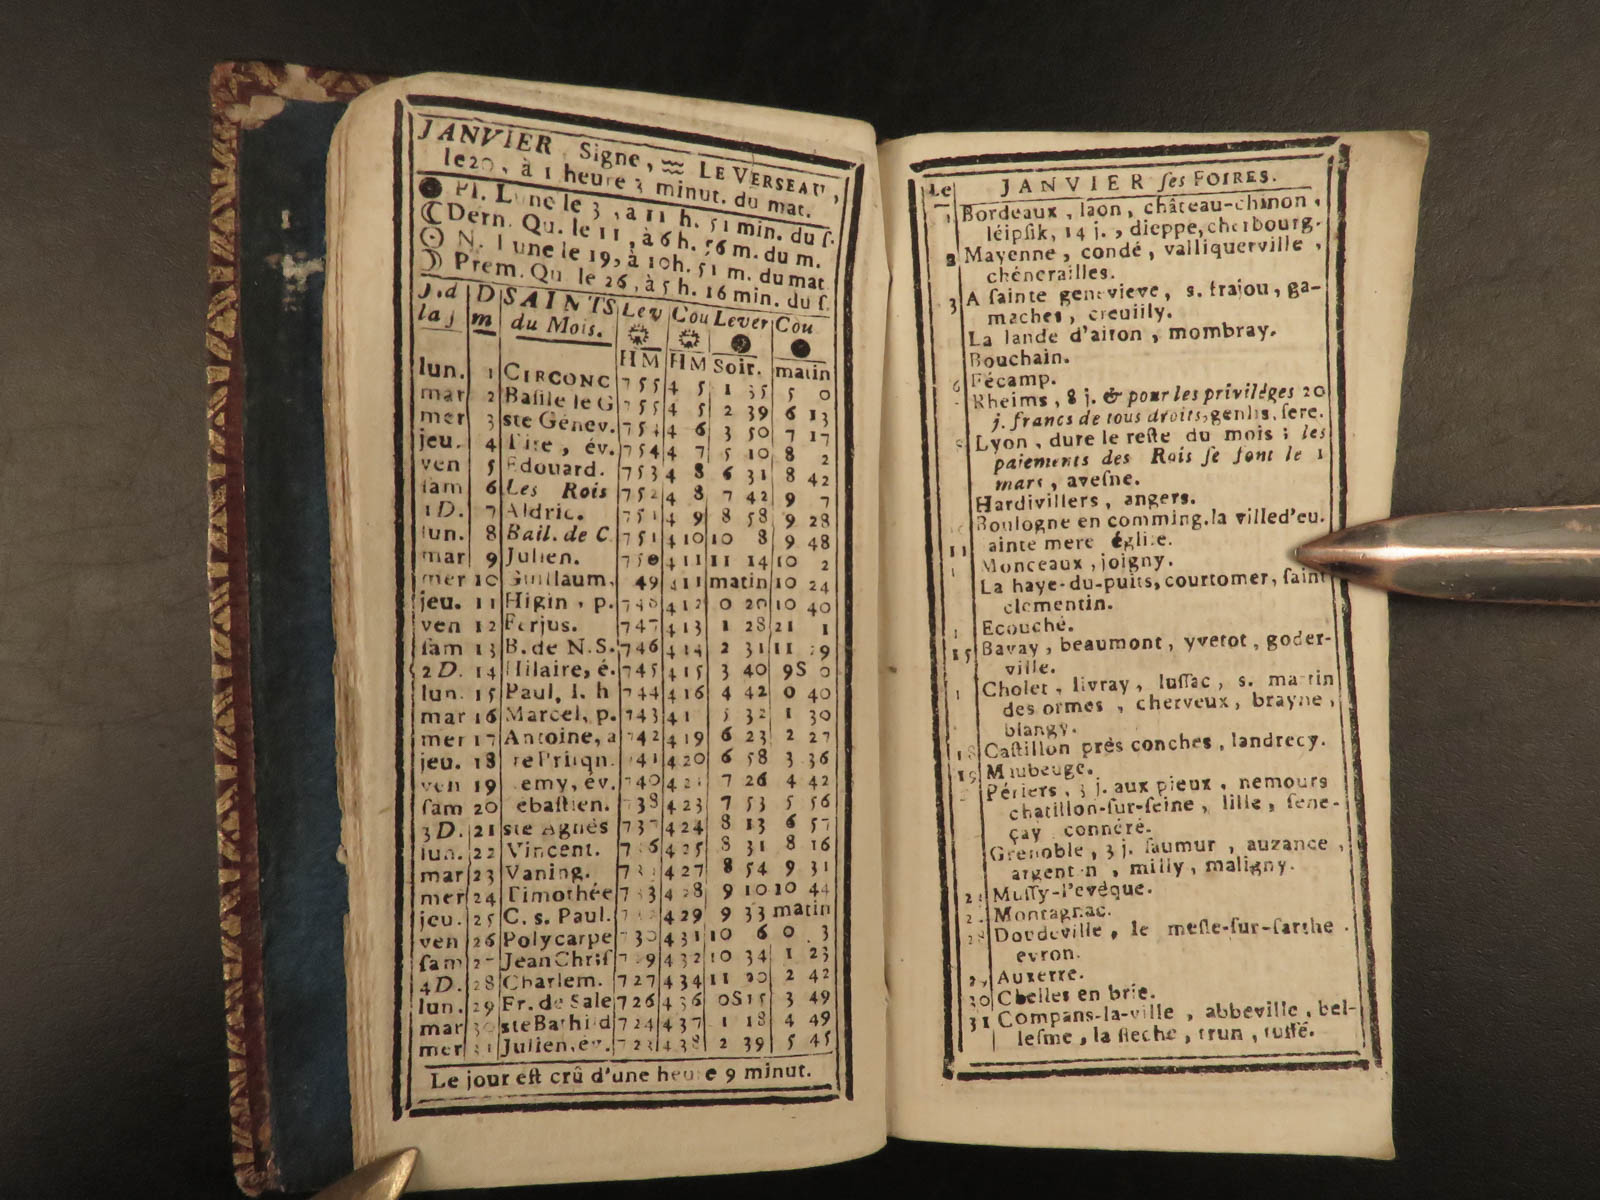 JANVIER Signe, ♒ LE VERSEAU,
le 20, à 1 heure 3 minut. du mat.
Pl. Lune le 3, à 11 h. 51 min. du ſ.
Dern. Qu. le 11, à 6 h. 56 m. du m.
N. Lune le 19, à 10h. 51 m. du mat
Prem. Qu le 26, à 5 h. 16 min. du ſ.
J.d D SAINTS Lev Cou Lever Cou
la ſ m du Mois.
HM HM Soir. matin
lun. 1 CIRCONC 7 55 4 5 1 35 5 0
mar 2 Baſile le G 7 55 4 5 2 39 6 13
mer 3 ste Génev. 7 54 4 6 3 50 7 17
jeu. 4 Tite, év. 7 54 4 7 5 10 8 2
ven 5 Edouard. 7 53 4 8 6 31 8 42
ſam 6 Les Rois 7 52 4 8 7 42 9 7
1D. 7 Aldric. 7 51 4 9 8 58 9 28
lun. 8 Bail. de C 7 51 4 10 10 8 9 48
mar 9 Julien. 7 50 4 11 11 14 10 2
mer 10 Guillaum, 49 4 11 matin 10 24
jeu. 11 Higin, p. 7 48 4 12 0 20 10 40
ven 12 Ferjus. 7 47 4 13 1 28 21 1
ſam 13 B. de N.S. 7 46 4 14 2 31 11 29
2D. 14 Hilaire, é. 7 45 4 15 3 40 9S 0
lun. 15 Paul, 1. h 7 44 4 16 4 42 0 40
mar 16 Marcel, p. 7 43 4 1 5 32 1 30
mer 17 Antoine, a 7 42 4 19 6 23 2 27
jeu. 18 41 4 20 6 58 3 36
ven 19 emy, év. 7 40 4 7 26 4 42
ſam 20 ebaſtien. 7 38 4 23 7 53 5 56
3D. 21 ste Agnès 7 37 4 24 8 13 6 57
lun. 22 Vincent. 7 36 4 25 8 31 8 16
mar 23 Vaning. 7 4 27 8 54 9 31
mer 24 Timothée 7 33 4 28 9 10 10 44
jeu. 25 C. s. Paul. 7 4 29 9 33 matin
ven 26 Polycarpe 7 30 4 31 10 6 0 3
ſam 2 Jean Chriſ 7 29 4 32 10 34 1 23
4D. 28 Charlem. 7 27 4 34 11 20 2 42
lun. 29 Fr. de Sale 7 26 4 36 0S15 3 49
mar 30 ste Bathild 7 24 4 37 1 18 4 49
mer 31 Julien, év. 7 23 4 38 2 39 5 45
Le jour eſt crû d'une heure 9 minut.
Le JANVIER ſes FOIRES.
1 Bordeaux, laon, château-chinon,
léipſik, 14 j., dieppe, cherbourg.
2 Mayenne, condé, valliquerville,
chénerailles.
3 A ſainte genevieve, s. frajou, ga-
maches, creuilly.
La lande d'airon, mombray.
Bouchain.
6 Fécamp.
Rheims, 8 j. & pour les privilèges 20
j. francs de tous droits, genlis, fere.
Lyon, dure le reſte du mois; les
paiements des Rois ſe font le 1
mars, aveſne.
Hardivillers, angers.
Boulogne en comming. la ville d'eu.
11 ainte mere égliſe.
Monceaux, joigny.
La haye-du-puits, courtomer, ſaint
clementin.
Ecouché.
15 Bavay, beaumont, yvetot, goder-
ville.
Cholet, livray, luſſac, s. martin
des ormes, cherveux, brayne,
blangy.
18 Caſtillon près conches, landrecy.
19 Maubeuge.
Périers, 3 j. aux pieux, nemours
chatillon-ſur-ſeine, lille, ſene-
çay connéré.
Grenoble, 3 j. ſaumur, auzance,
argenton, milly, maligny.
Muſſy-l'evêque.
Montagnac.
28 Doudeville, le meſle-ſur-ſarthe.
evron.
Auxerre.
30 Chelles en brie.
31 Compans-la-ville, abbeville, bel-
leſme, la fleche, trun, tuffé.